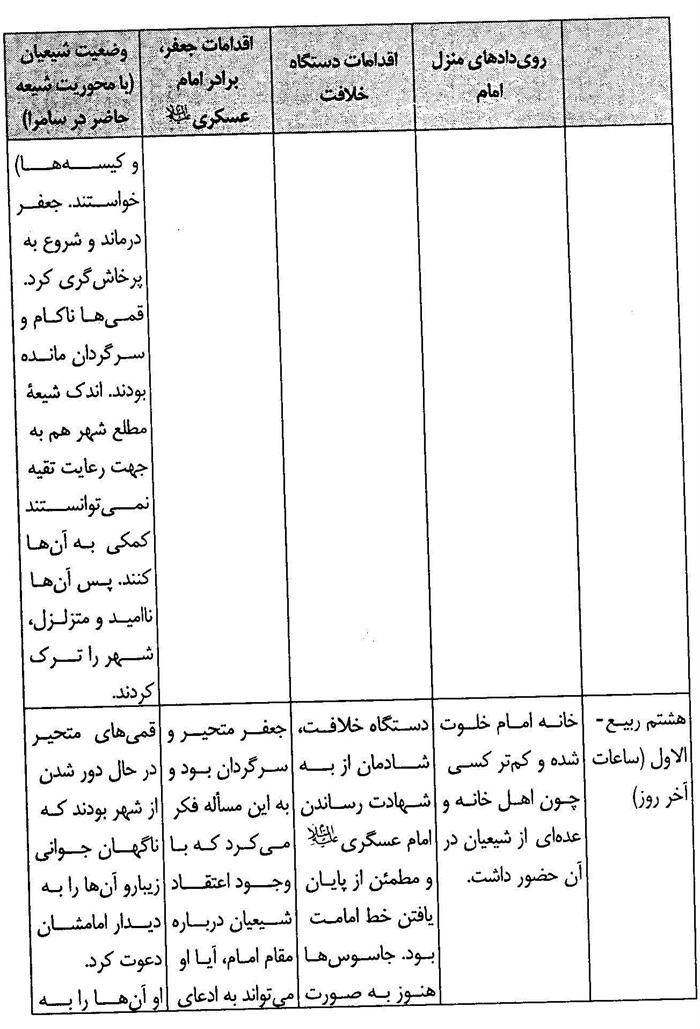 روی‌دادهای منزل
امام
اقدامات دستگاه
خلافت
اقدامات جعفر،
برادر امام
عسکری علیه‌السلام
وضعیت شیعیان
(با محوریت شیعه
حاضر در سامرا)
و کیسه‌ها)
خواستند. جعفر
درماند و شروع به
پرخاش‌گری کرد.
قمی‌ها ناکام و
سرگردان مانده
بودند. اندک شیعهٔ
مطلع شهر هم به
جهت رعایت تقیه
نمی‌توانستند
کمکی به آن‌ها
کنند. پس آن‌ها
ناامید و متزلزل،
شهر را ترک
کردند.
هشتم ربیع-
الاول (ساعات
آخر روز)
خانه امام خلوت
شده و کم‌تر کسی
چون اهل خانه و
عده‌ای از شیعیان در
آن حضور داشت.
دستگاه خلافت،
شادمان از به
شهادت رساندن
امام عسگری علیه‌السلام
و مطمئن از پایان
یافتن خط امامت
بود. جاسوس‌ها
هنوز به صورت
جعفر متحیر و
سرگردان بود و
به این مسأله فکر
می‌کرد که با
وجود اعتقاد
شیعیان درباره
مقام امام، آیا او
می‌تواند به ادعای
قمی‌های متحیر
در حال دور شدن
از شهر بودند که
ناگهان جوانی
زیبارو آن‌ها را به
دیدار امامشان
دعوت کرد.
او آن‌ها را به